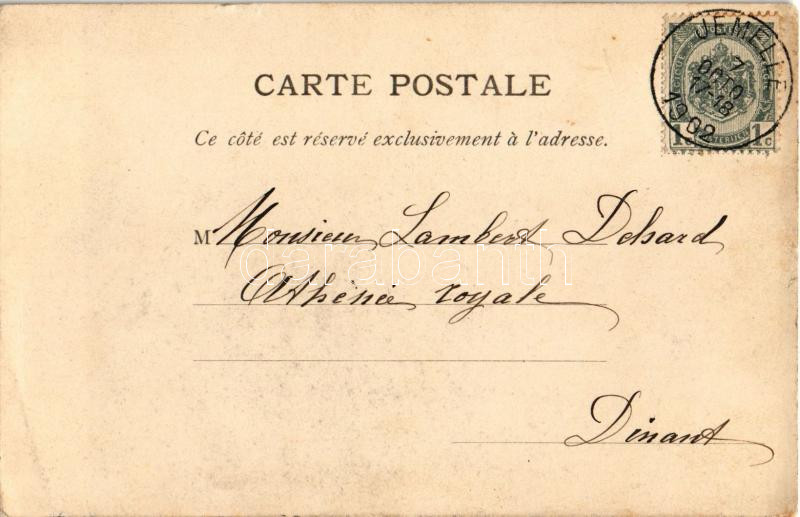 JEMELLE
7
OCTO
17-18
1902
1 c
1 c
CARTE POSTALE
Ce côté est réservé exclusivement à l'adresse.
M Monsieur Lambert Dehard
darabanth
Athénée royale
Dinant